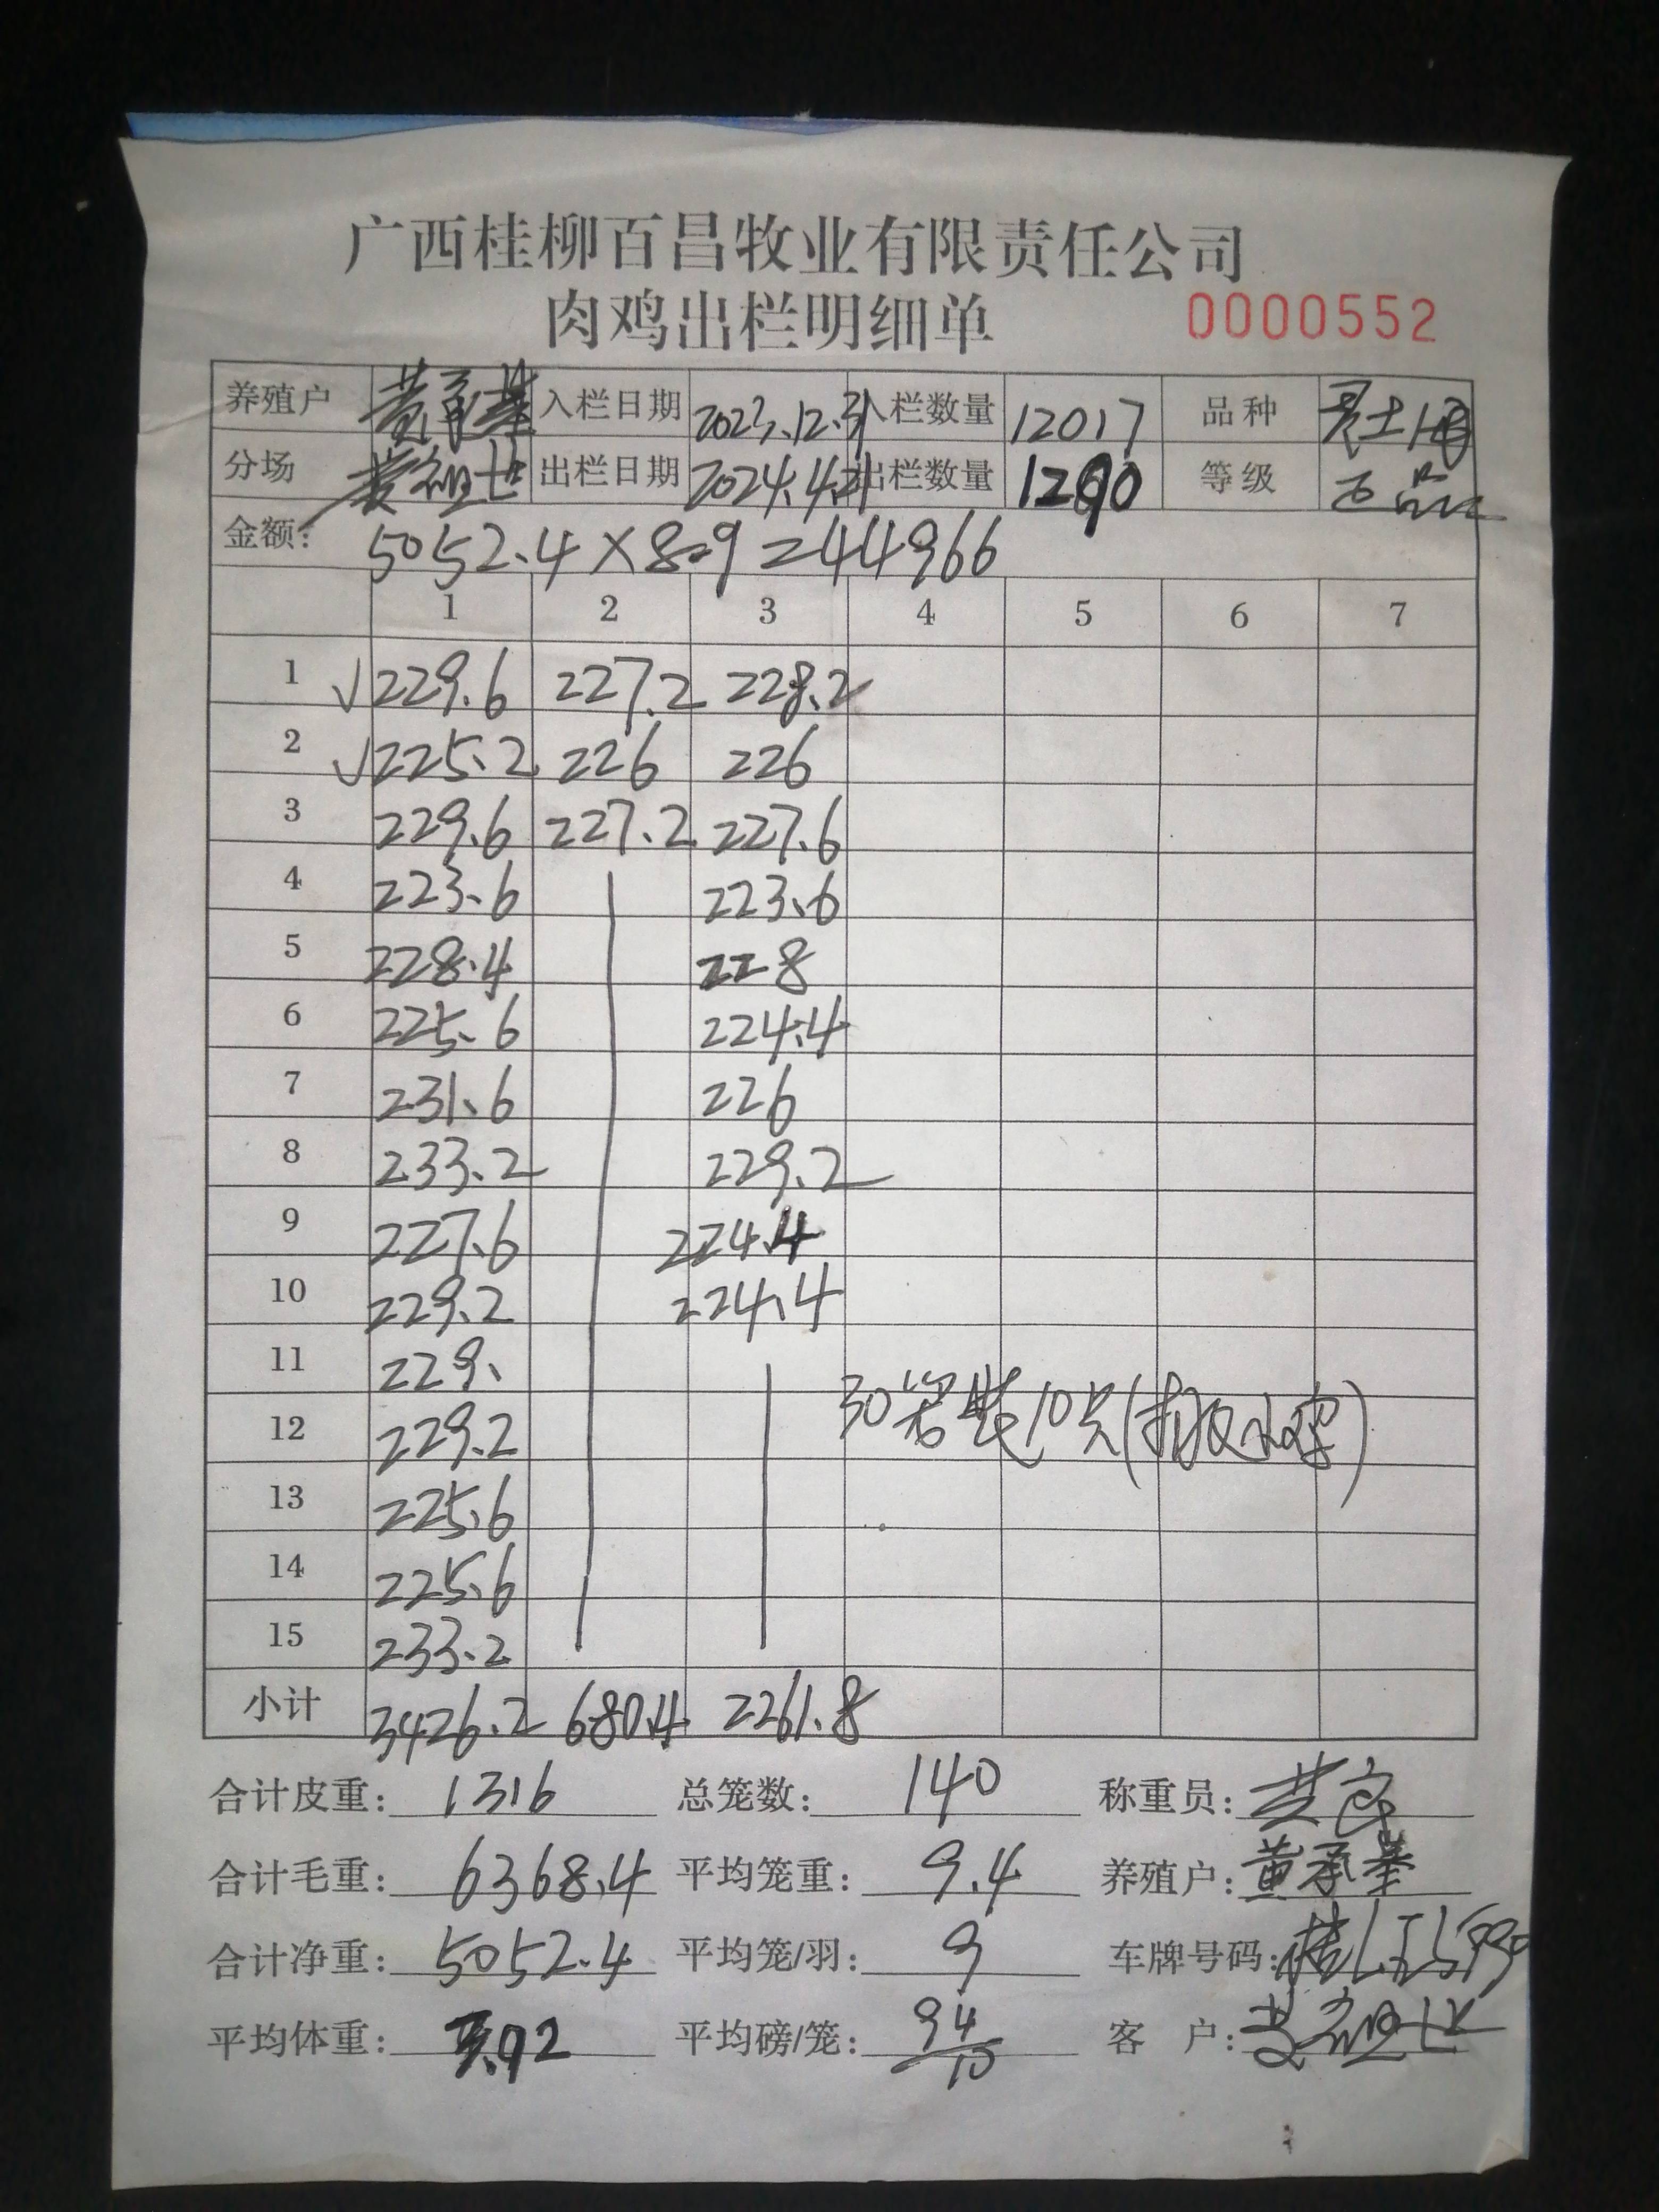 广西桂柳百昌牧业有限责任公司
肉鸡出栏明细单 0000552
养殖户 黄承基 入栏日期 2023.12.31 入栏数量 12017 品种 灵土
分场 出栏日期 2024.4.21 出栏数量 1290 等级
金额: 5052.4×8.9=44966
1 2 3 4 5 6 7
1 √229.6 227.2 228.2
2 √225.2 226 226
3 229.6 227.2 227.6
4 223.6 223.6
5 228.4 228
6 225.6 224.4
7 231.6 226
8 233.2 229.2
9 227.6 224.4
10 229.2 224.4
11 229.
12 229.2 30笼装10只(
13 225.6
14 225.6
15 233.2
小计 3426.2 680.4 2261.8
合计皮重: 1316 总笼数: 140 称重员:
合计毛重: 6368.4 平均笼重: 9.4 养殖户: 黄承基
合计净重: 5052.4 平均笼/羽: 9 车牌号码:
平均体重: 3.92 平均磅/笼: 94/10 客户: